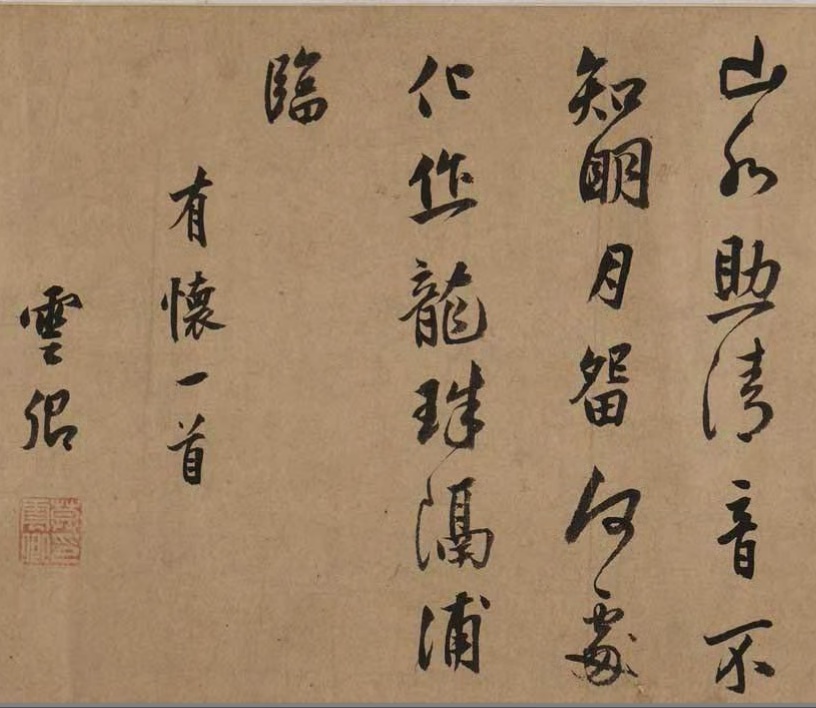 山水助清音不
知明月留何處
化作龍珠隔浦
臨
有懷一首
雲卿